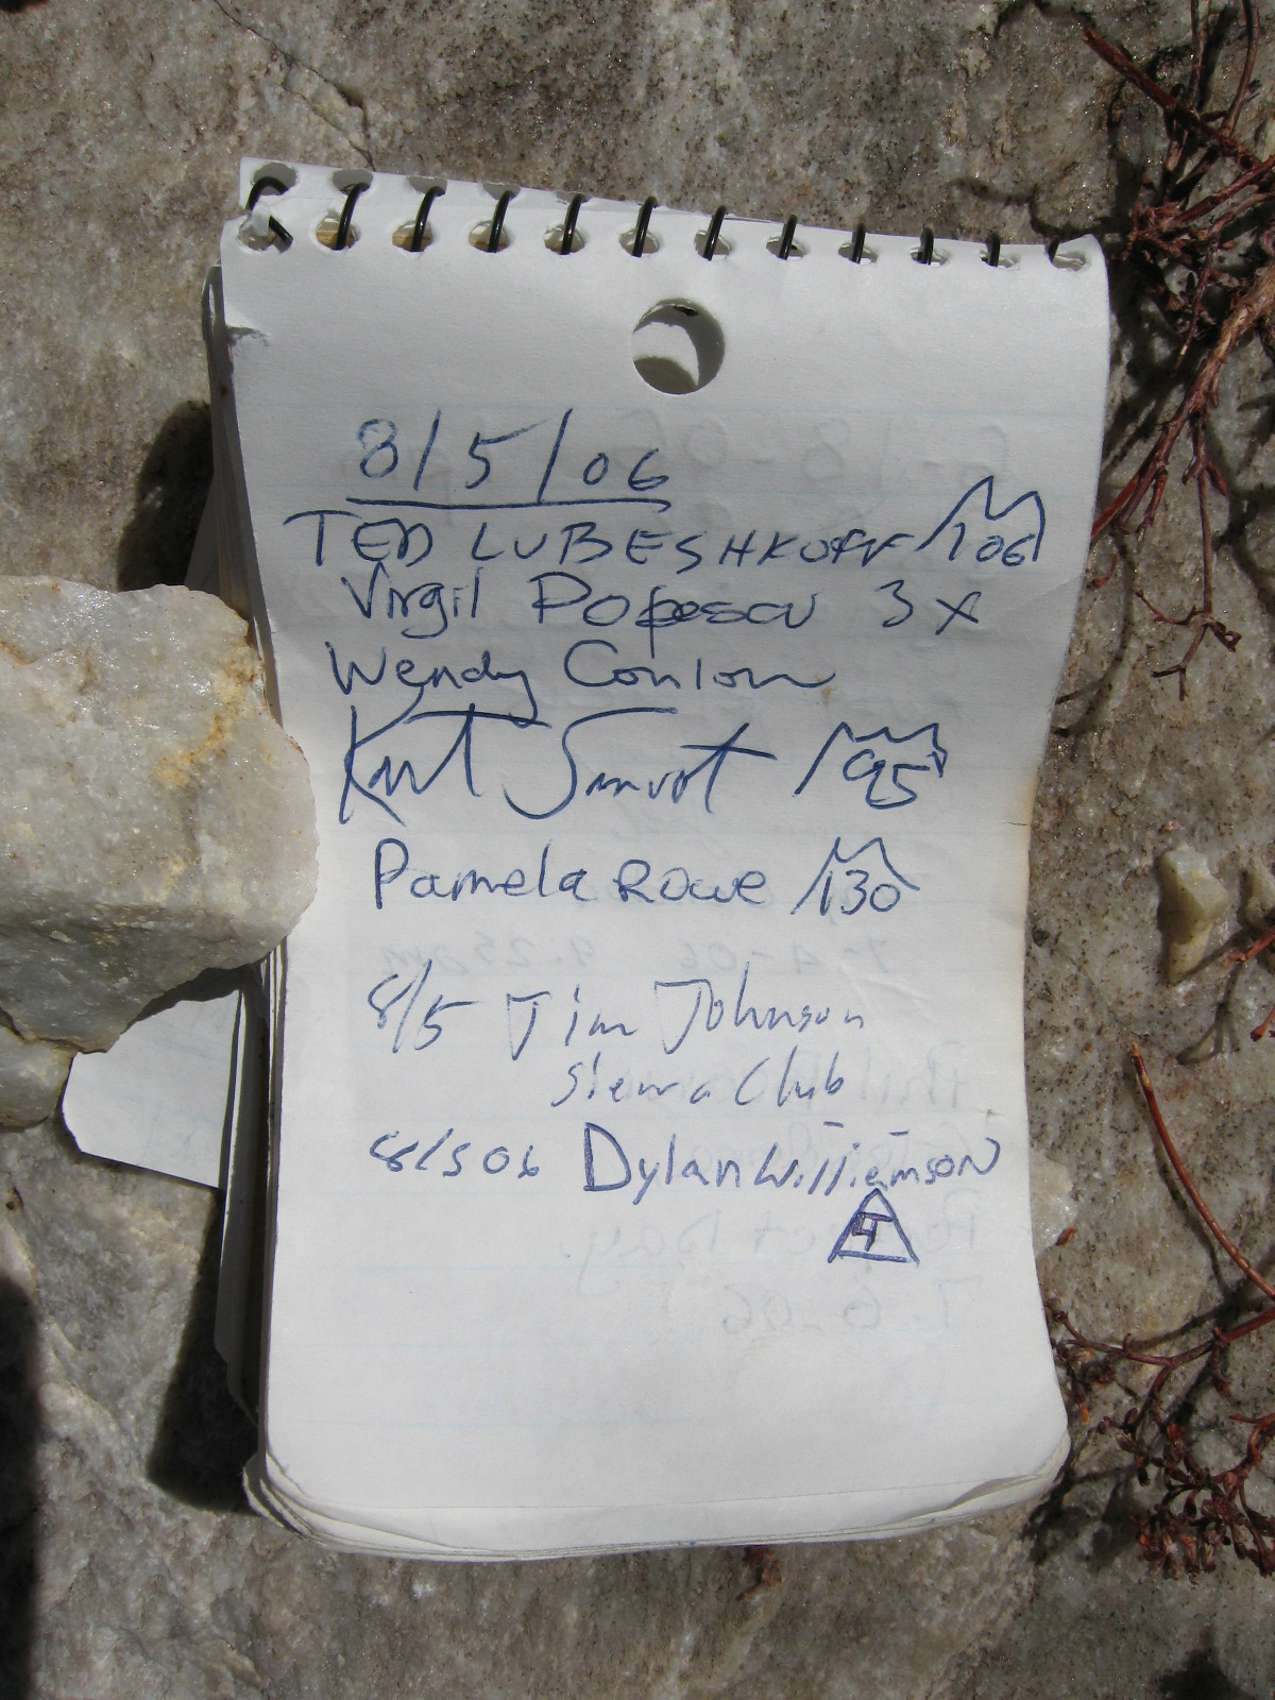 8/5/06
TED LUBESHKOFF 106
Virgil Popescu 3x
Wendy Conlon
Kurt 95
Pamela Rowe 130
8/5 Jim Johnson
Sierra Club
8/5 06 Dylan Williamson
4